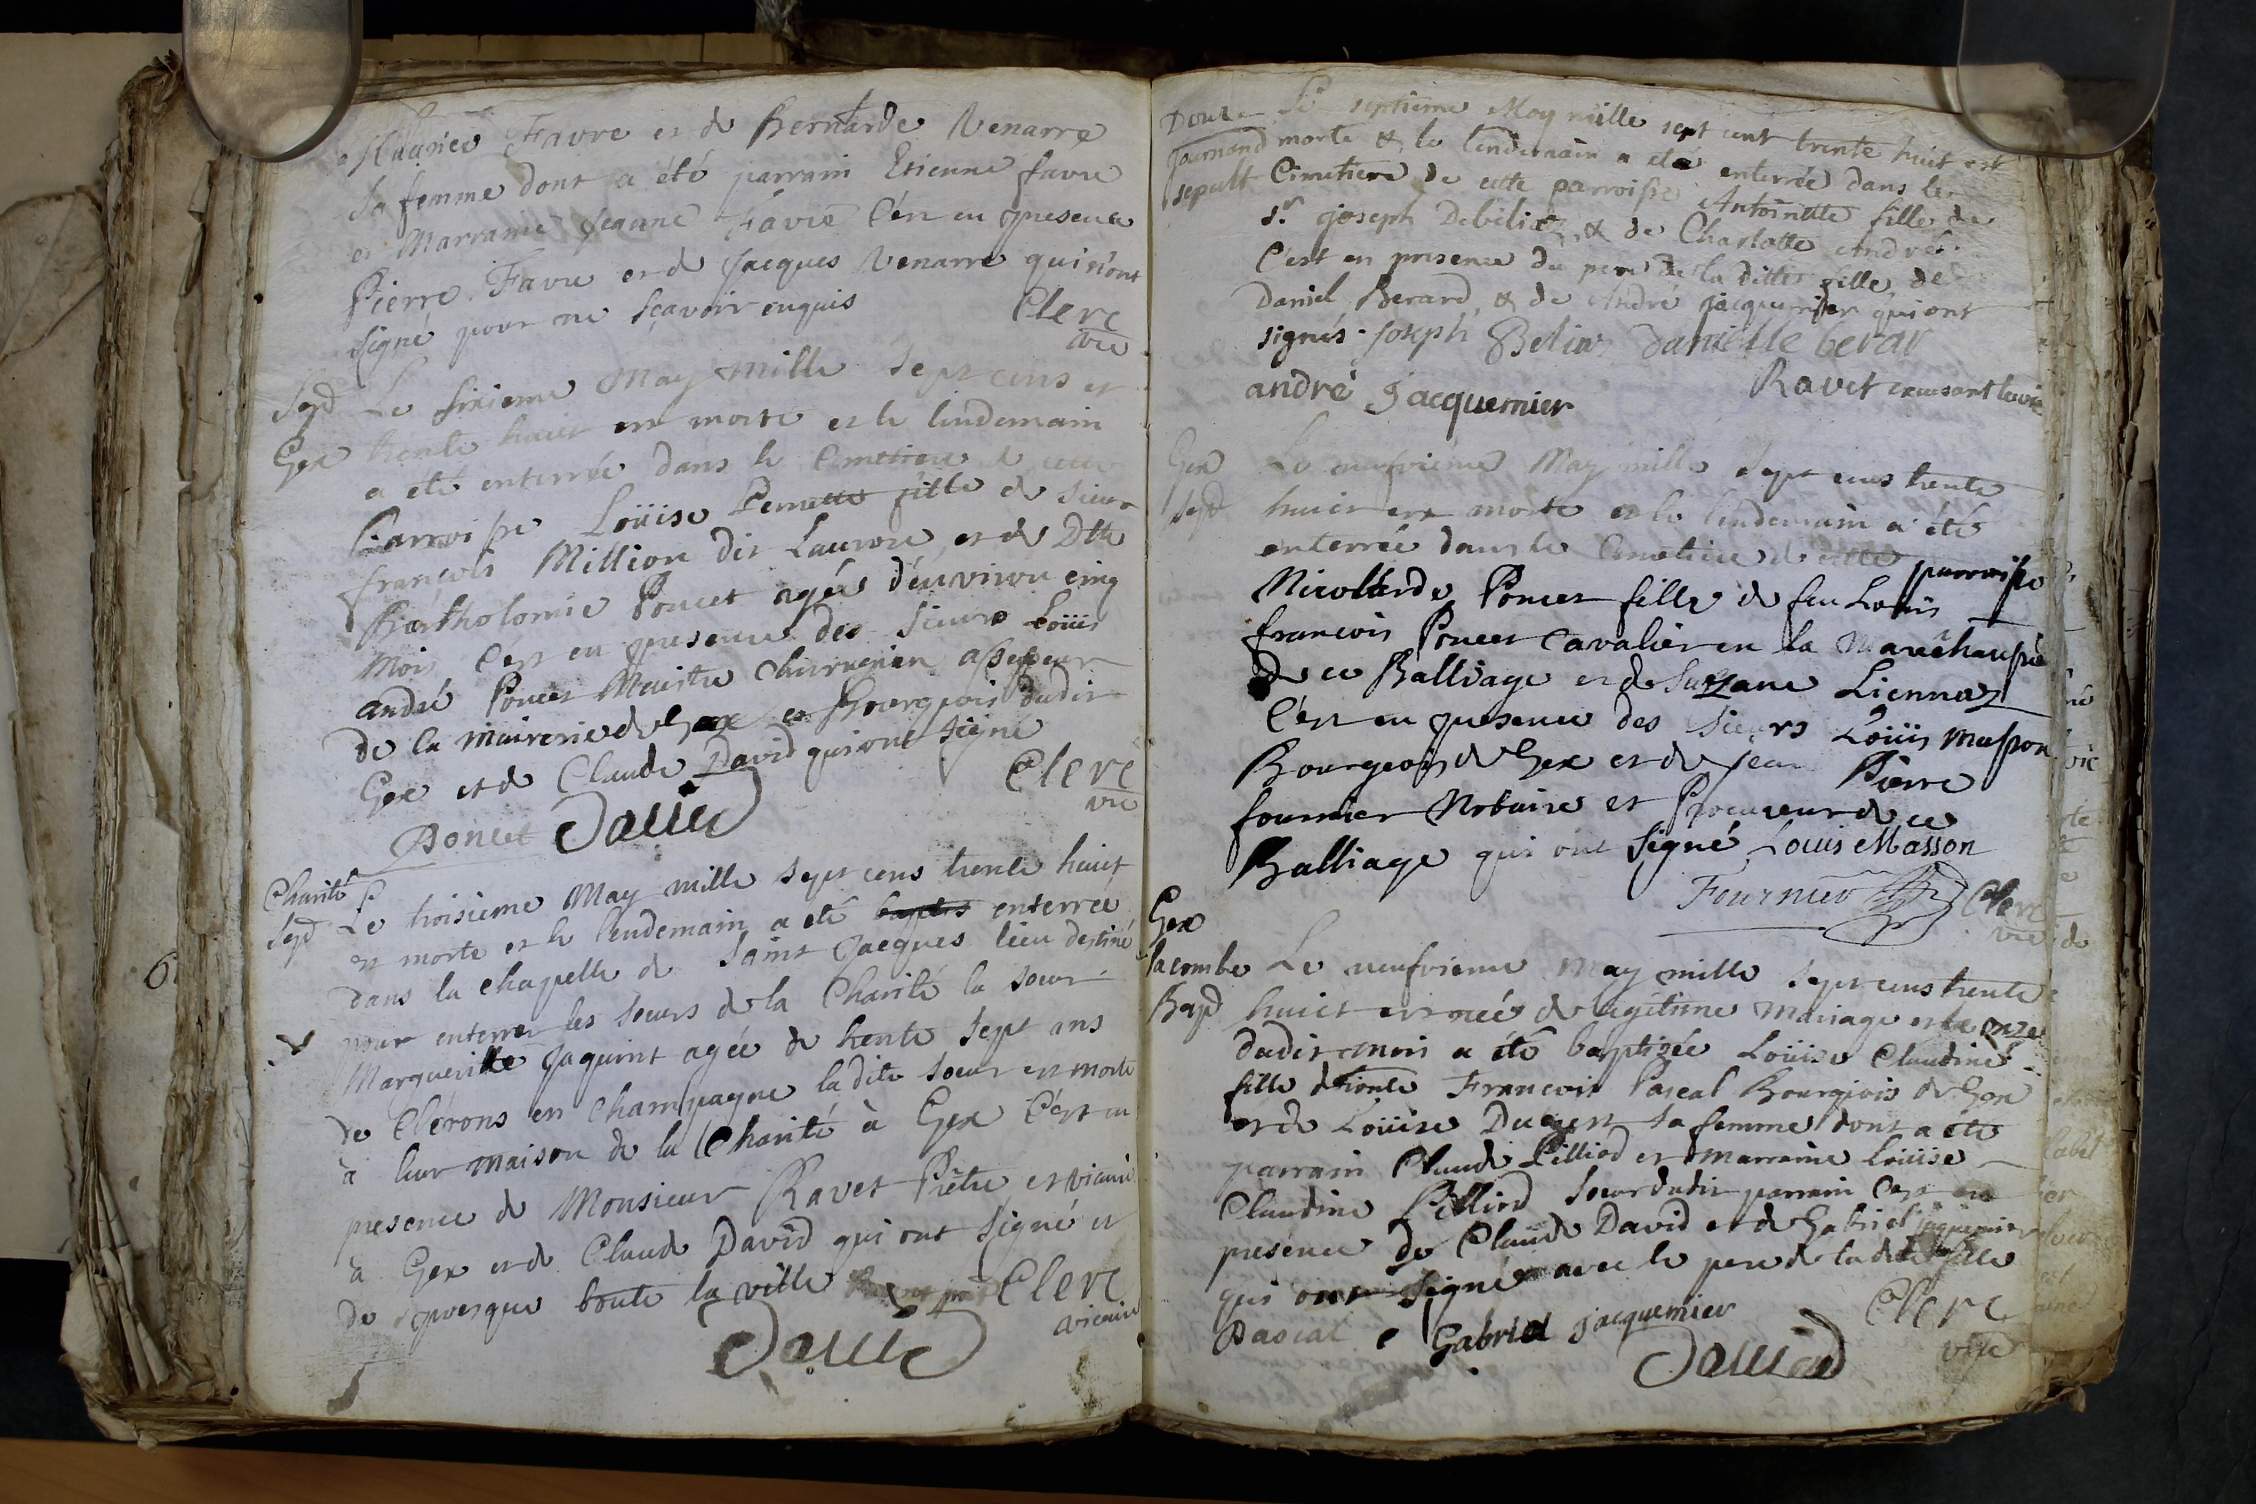 Maurice Favre et de Bernarde Venarre
sa femme dont a été parrain Etienne favre
et Marraine Jeanne Favre C'est en presence
Pierre Favre et de Jacques Venarre qui n'ont
signé pour ne sçavoir enquis
Clerc
vic
Sep
Gex
Le sixieme May mille sept cens et
trente huict est morte et le lendemain
a été enterrée dans le Cimetiere de cette
Parroisse Loüise Pernette fille de Sieur
françois Million dit Laurore et de Dlle
Bartholomie Poncet agée d'environ cinq
Mois C'est en presence des Sieurs Loüis
andré Poncet Maistre Chirurgien assesseur
de la mairerie de Gex et Bourgeois dudit
Gex et de Claude David qui ont signé
Clerc
vic
Poncet David
Charité
Sep
Le troisieme May mille sept cens trente huict
est morte et le lendemain a été enterrée
dans la chapelle de Saint Jacques lieu destiné
pour enterrer les soeurs de la Charité la soeur
Marguerite Jaquint agée de trente sept ans
de Clérons en Champagne ladite soeur est morte
à leur maison de la Charité à Gex C'est en
presence de Monsieur Ravet Prêtre et vicaire
à Gex et de Claude David qui ont signé et
de presque toute la ville
Clerc
vicaire
David
Gournand
sepult
Le septieme May mille sept cent trente huit est
morte & le lendemain a été enterrée dans le
Cimetiere de cette parroisse Antoinette fille de
Sr. joseph Debelin & de Charlotte André
C'est en presence du pere de la ditte fille de
Daniel Berard & de André jacquemier qui ont
signés. joseph Belin danielle berar
andré Jacquemier
Ravet
Gex
Sep
Le neufvieme May mille sept cens trente
huict est morte et le lendemain a été
enterrée dans le Cimetiere de cette parroisse
Nicolarde Poncet fille de feu Loüis
francois Poncet Cavalier en la Marêchaussée
de ce Balliage et de Suzane Liennaz
C'est en presence des Sieurs Loüis Masson
Bourgeois de Gex et de Jean Pierre
fournier Notaire et Procureur de ce
Balliage qui ont signé Louis Masson
Fournier
Clerc
vic
Gex
lacombe
Bap
Le neufvieme May mille sept cens trente
huict est née de legitime Mariage et le onze
dudit mois a été baptizée Loüise Claudine
fille Francois Pascal Bourgeois de Gex
et de Loüise Ducrest sa femme dont a été
parrain Claude Pilliod et marraine Loüise
Claudine Pilliod soeur dudit parrain C'est en
presence de Claude David et de Gabriel jaquemier
qui ont signé avec le pere de la dite fille
Pascal Gabriel jacquemier
Clerc
vic
David